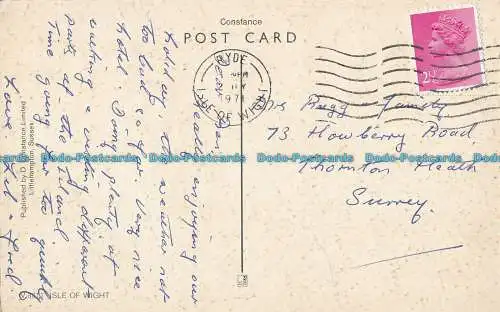 Constance
POST CARD
RYDE
PM
1971
ISLE OF WIGHT
2½
Dear
Really enjoying our
holiday, the weather not
too bad so far. Very nice
Hotel. Doing plenty of
walking & visiting different
parts of the Island
Time going far too quickly
Love Lil & Fred
Mrs Rugg & Family
73 Howberry Road,
Thornton Heath
Surrey.
Published by D. Constance Limited
Littlehampton, Sussex
ISLE OF WIGHT
Dodo-Postcards Dodo-Postcards Dodo-Postcards Dodo-Postcards Dodo-Postcards